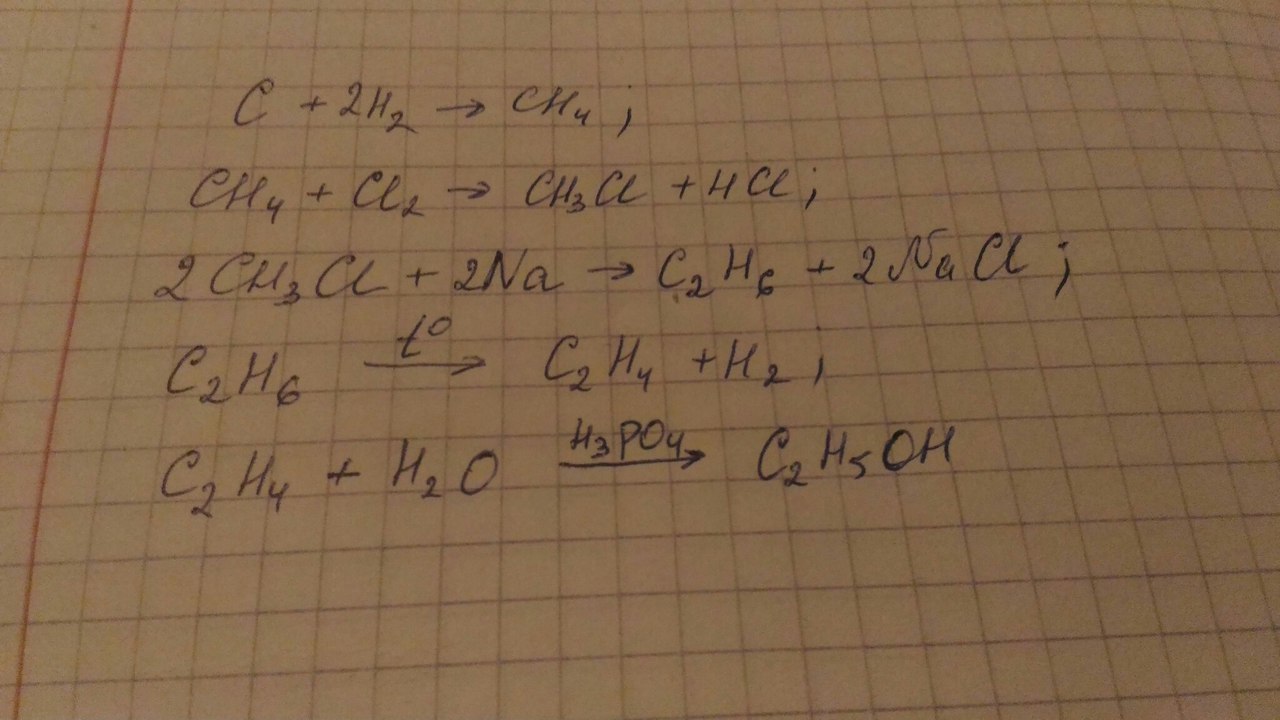 C + 2H₂ → CH₄ ;
CH₄ + Cl₂ → CH₃Cl + HCl ;
2CH₃Cl + 2Na → C₂H₆ + 2NaCl ;
C₂H₆ t° → C₂H₄ + H₂ ;
C₂H₄ + H₂O H₃PO₄ → C₂H₅OH